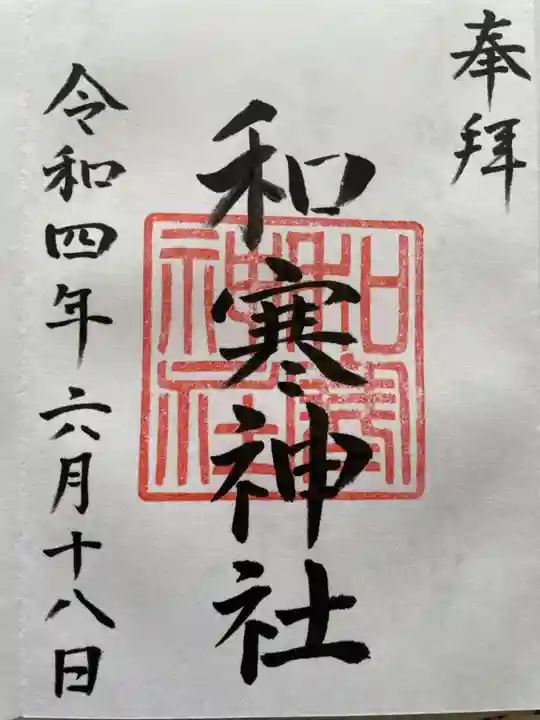 奉拝
和寒神社
和寒神社
令和四年六月十八日